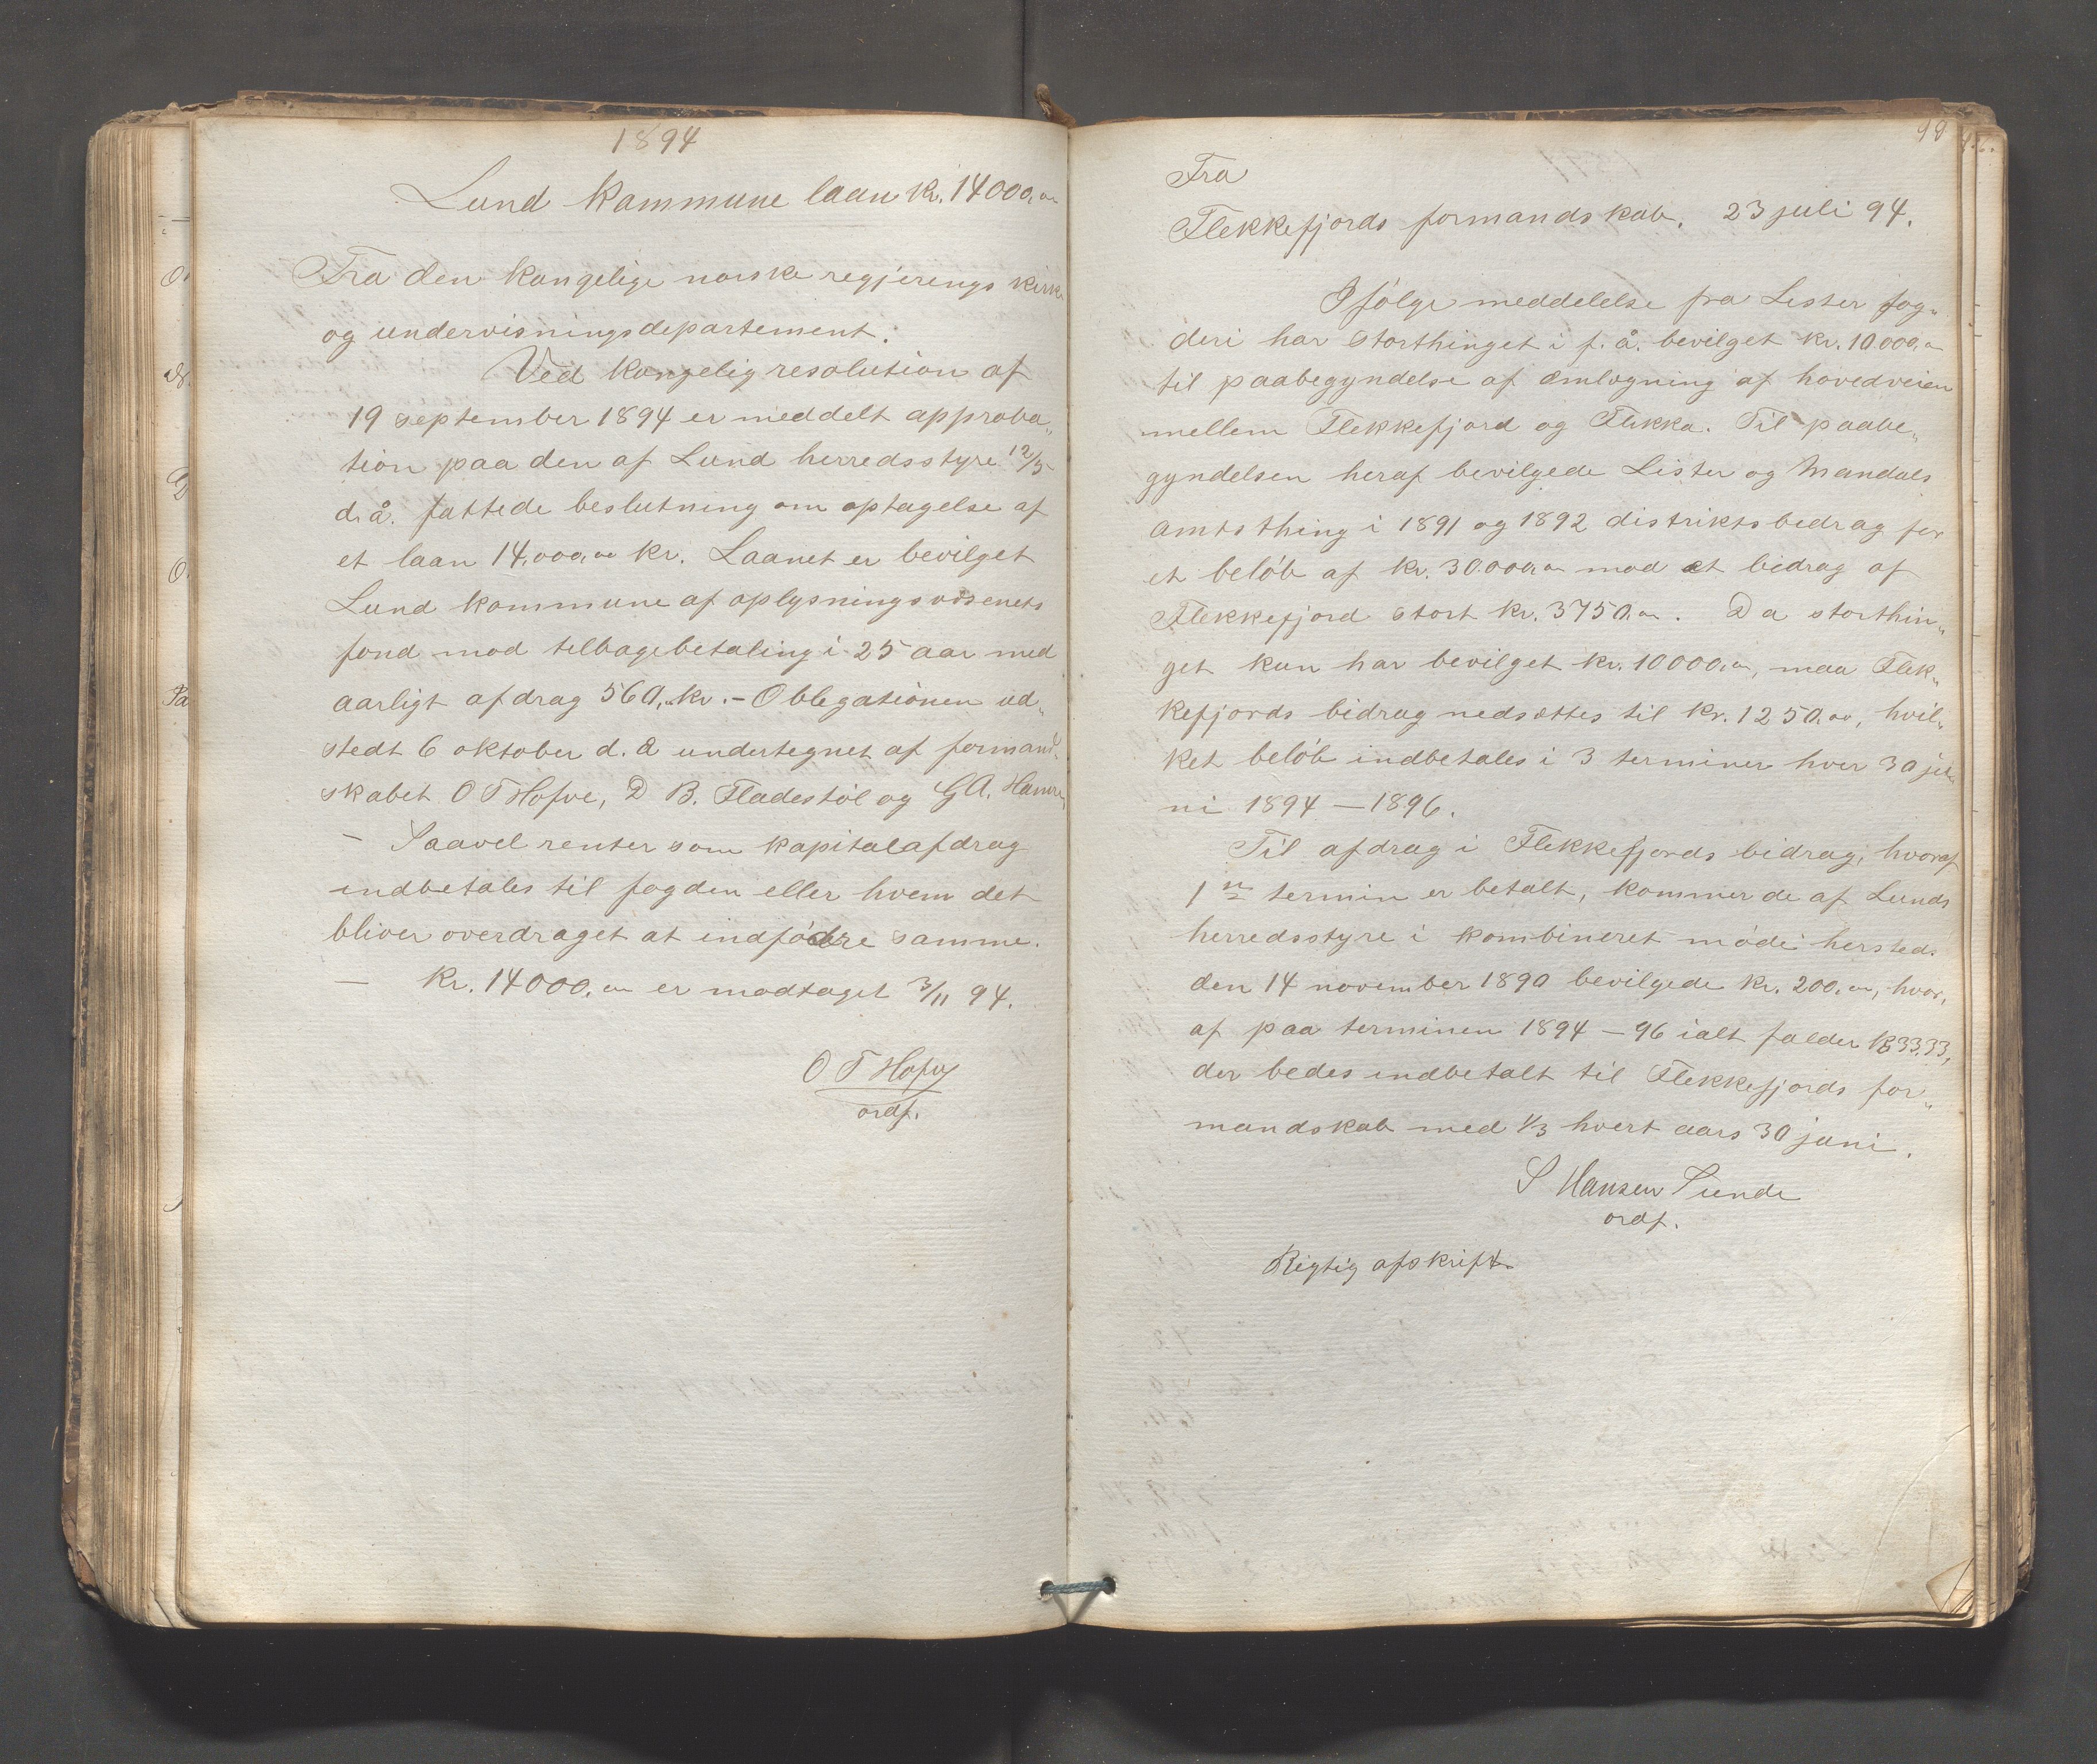 1894
Lund kommune laan kr. 14000,00
Fra den kongelige norske regjerings kirke
og undervisningsdepartement.
Ved kongelig resolution af
19 september 1894 er meddelt approba„
tion paa den af Lund herredsstyre 12/5
d. å. fattede beslutning om optagelse af
et laan 14,000,00 kr. Laanet er bevilget
Lund kommune af oplysningsvæsenets
fond mod tilbagebetaling i 25 aar med
aarligt afdrag 560,.. kr. – Obligationen ud„
stedt 6 oktober d. å undertegnet af formand„
skabet O T Hofve, D B. Fladestöl og G A. Hamre,
– Saavel renter som kapitalafdrag
indbetales til fogden eller hvem det
bliver overdraget at indfödre samme.
– Kr. 14000,00 er modtaget 3/11 94.
O T Hofve
ordf.
Fra
Flekkefjords formandskab. 23 juli 94.
Ifölge meddelelse fra Lister fog„
deri har storthinget i f. å. bevilget kr. 10.000,00
til paabegyndelse af omlægning af hovedveien
mellem Flekkefjord og Flikka. Til paabe„
gyndelsen heraf bevilgede Lister og Mandals
amtsthing i 1891 og 1892 distriktsbedrag for
et belöb af kr. 30.000,00 mod et bidrag af
Flekkefjord stort kr. 3750,00. Da storthin„
get kun har bevilget kr. 10000,00, maa Flek„
kefjords bidrag nedsættes til kr. 1250,00, hvil„
ket belöb indbetales i 3 terminer hver 30 ju„
ni 1894 – 1896.
Til afdrag i Flekkefjords bidrag, hvoraf
1ste termin er betalt, kommer de af Lunds
herredsstyre i kombineret möde hersteds
den 14 november 1890 bevilgede kr. 200,00, hvor„
af paa terminen 1894 – 96 ialt falder kr 33.33,
der bedes indbetalt til Flekkefjords for„
mandskab med 1/3 hvert aars 30 juni.
S Hansen Sunde
ordf.
Rigtig afskrift